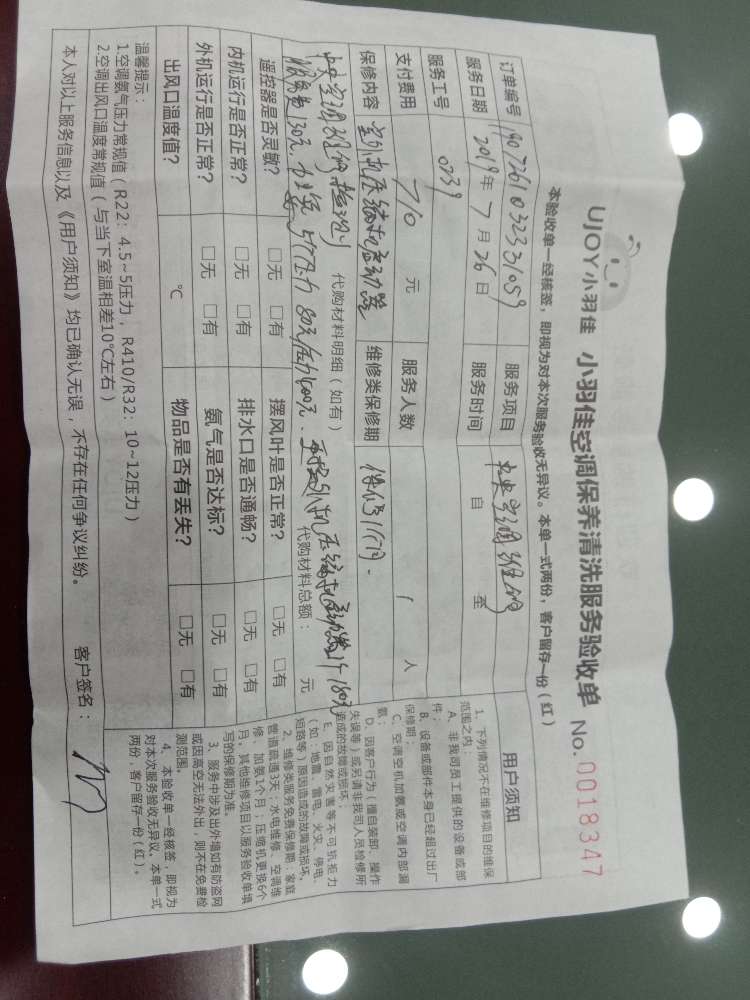 UJOY小羽佳 小羽佳空调保养清洗服务验收单 No.0018347
本验收单一经核签，即视为对本次服务验收无异议。本单一式两份，客户留存一份（红）
订单编号 服务项目 中央空调维修
服务日期 2019年7月26日 服务时间 自 至
服务工号 0239
支付费用 710 元 服务人数 1 人
保修内容 室外机压缩机启动器 维修类保修期
中央空调维修 代购材料明细（如有） 代购材料总额： 元
服务费130元
遥控器是否灵敏？ □无 □有 摆风叶是否正常？ □无 □有
内机运行是否正常？ □无 □有 排水口是否通畅？ □无 □有
外机运行是否正常？ □无 □有 氨气是否达标？ □无 □有
出风口温度值？ ℃ 物品是否有丢失？ □无 □有
温馨提示：
1.空调氨气压力常规值（R22：4.5~5压力，R410/R32：10~12压力）
2.空调出风口温度常规值（与当下室温相差10℃左右）
本人对以上服务信息以及《用户须知》均已确认无误，不存在任何争议纠纷。 客户签名：
用户须知
1、下列情况不在维修项目的维保
范围之内：
A、非我司员工提供的设备或部
件；
B、设备或部件本身已经超过出厂
保修期；
C、空调空机加氨或空调内部漏
氨；
D、因客户行为（擅自装卸、操作
失误等）或另请非我司人员检修所
造成的故障或损坏；
E、因自然灾害等不可抗拒力
（如：地震、雷电、火灾、停电、
短路等）原因造成的故障或损坏。
2、维修类服务免费保修期：家庭
管道疏通3天；水电维修、空调维
修、加氨1个月；压缩机更换6个
月，其他维修项目以服务验收单填
写的保修期为准。
3、服务中涉及出外墙如有防盗网
或因高空无法外出，则不在免费检
测范围。
4、本验收单一经核签，即视为
对本次服务验收无异议。本单一式
两份，客户留存一份（红）。